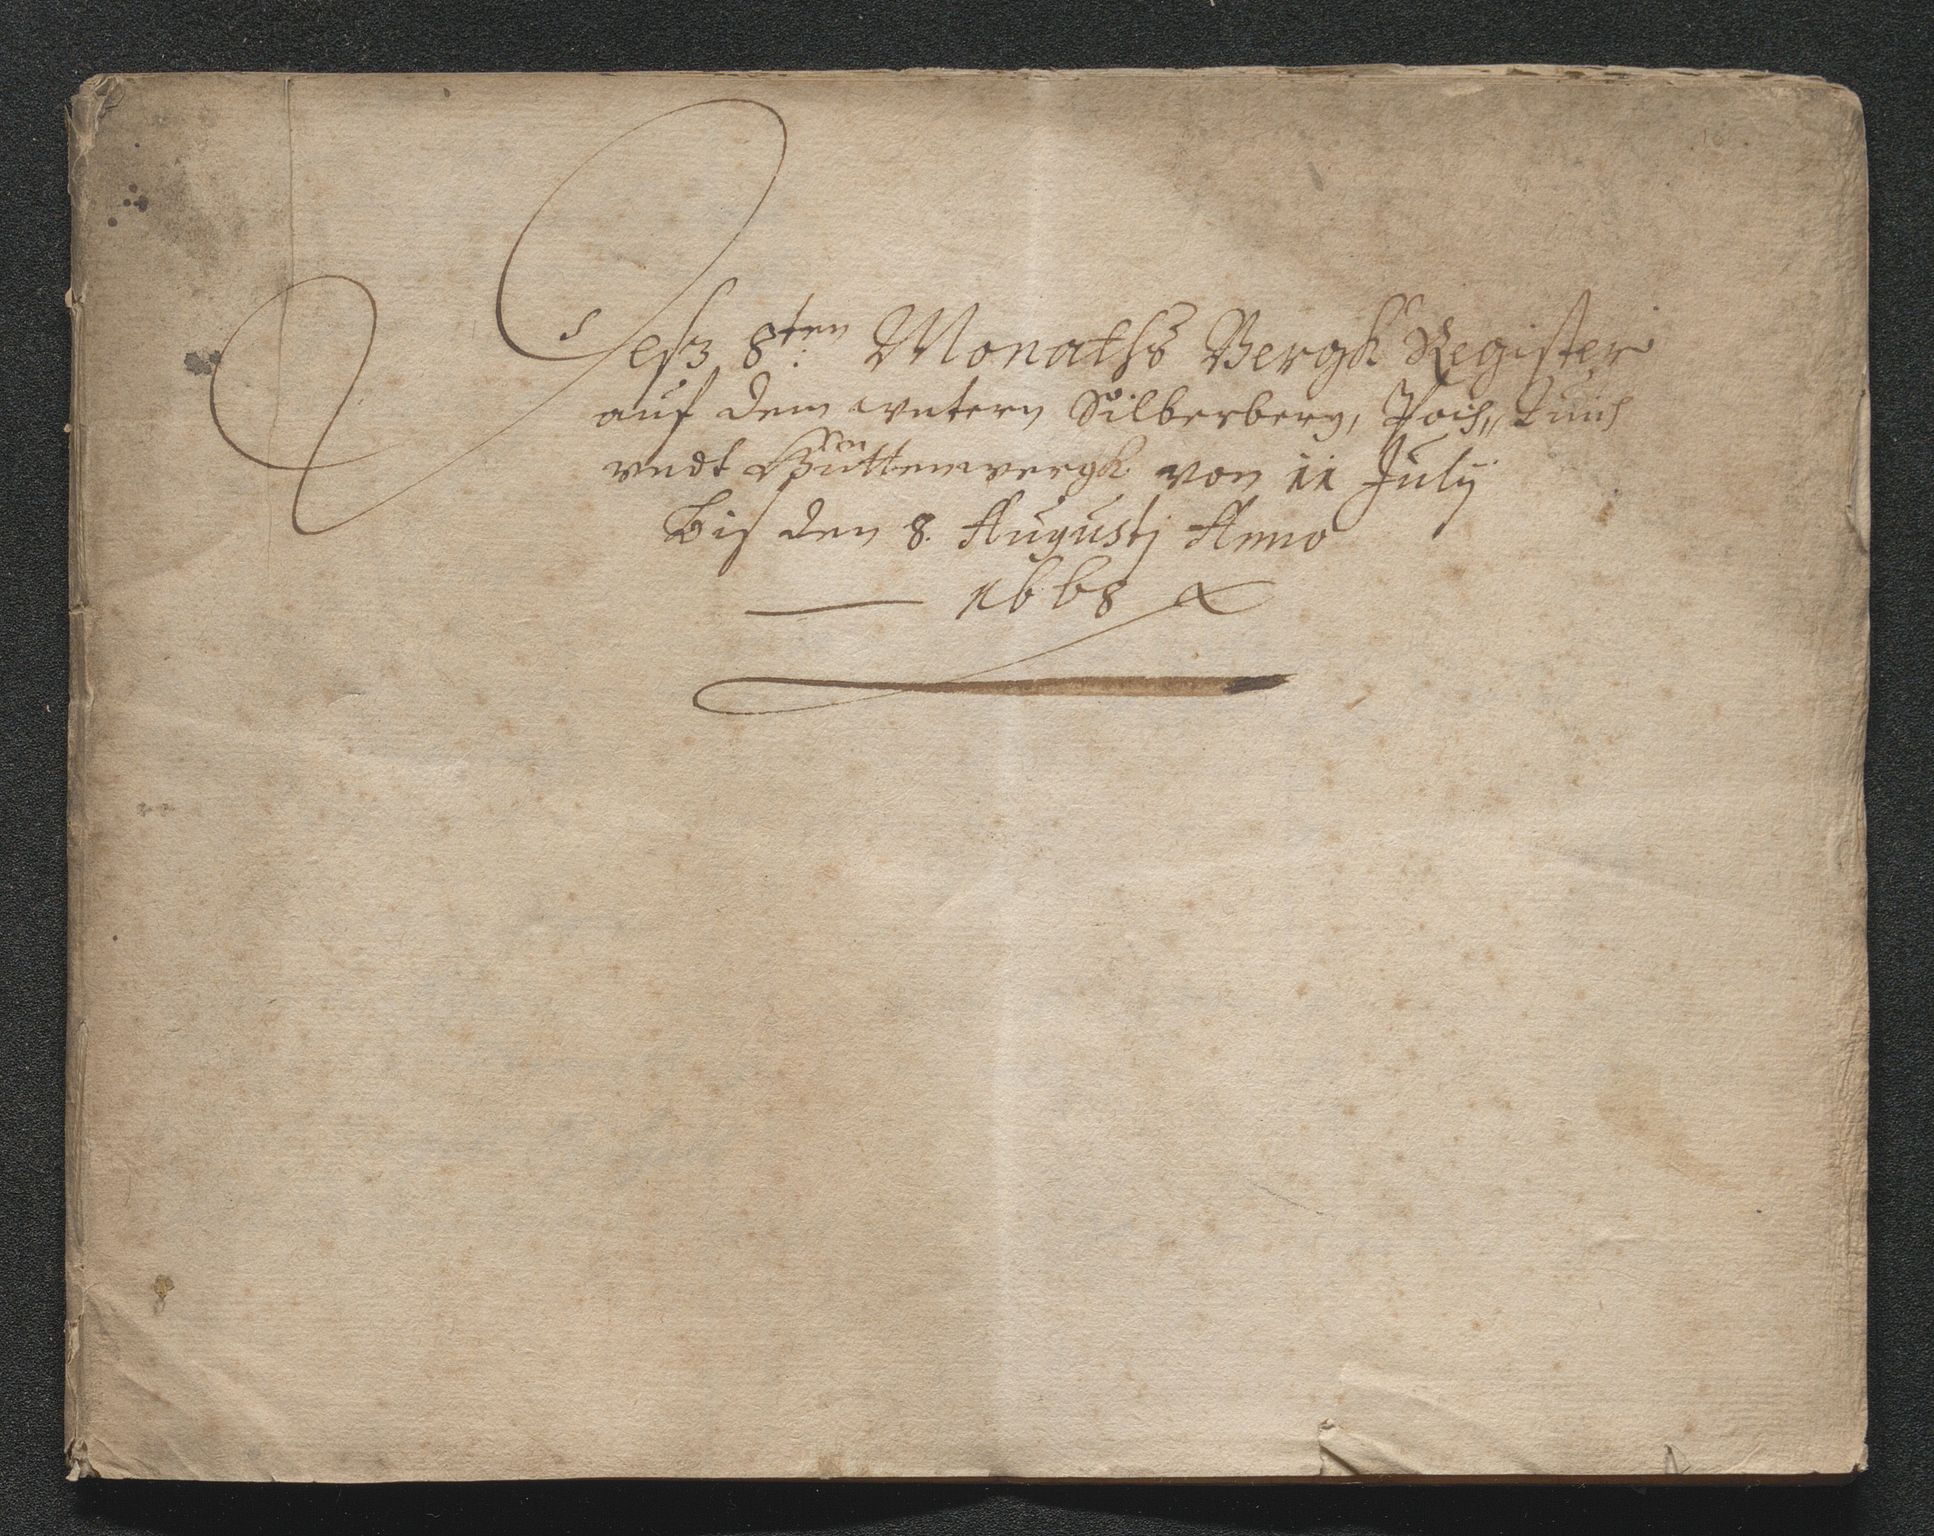 Desz 8ten: Monaths Bergk Register
auf dem untern Silberberg, Poch,,
undt Hüttenwergk von 11 July
bis den 8. Augustj Anno
1668